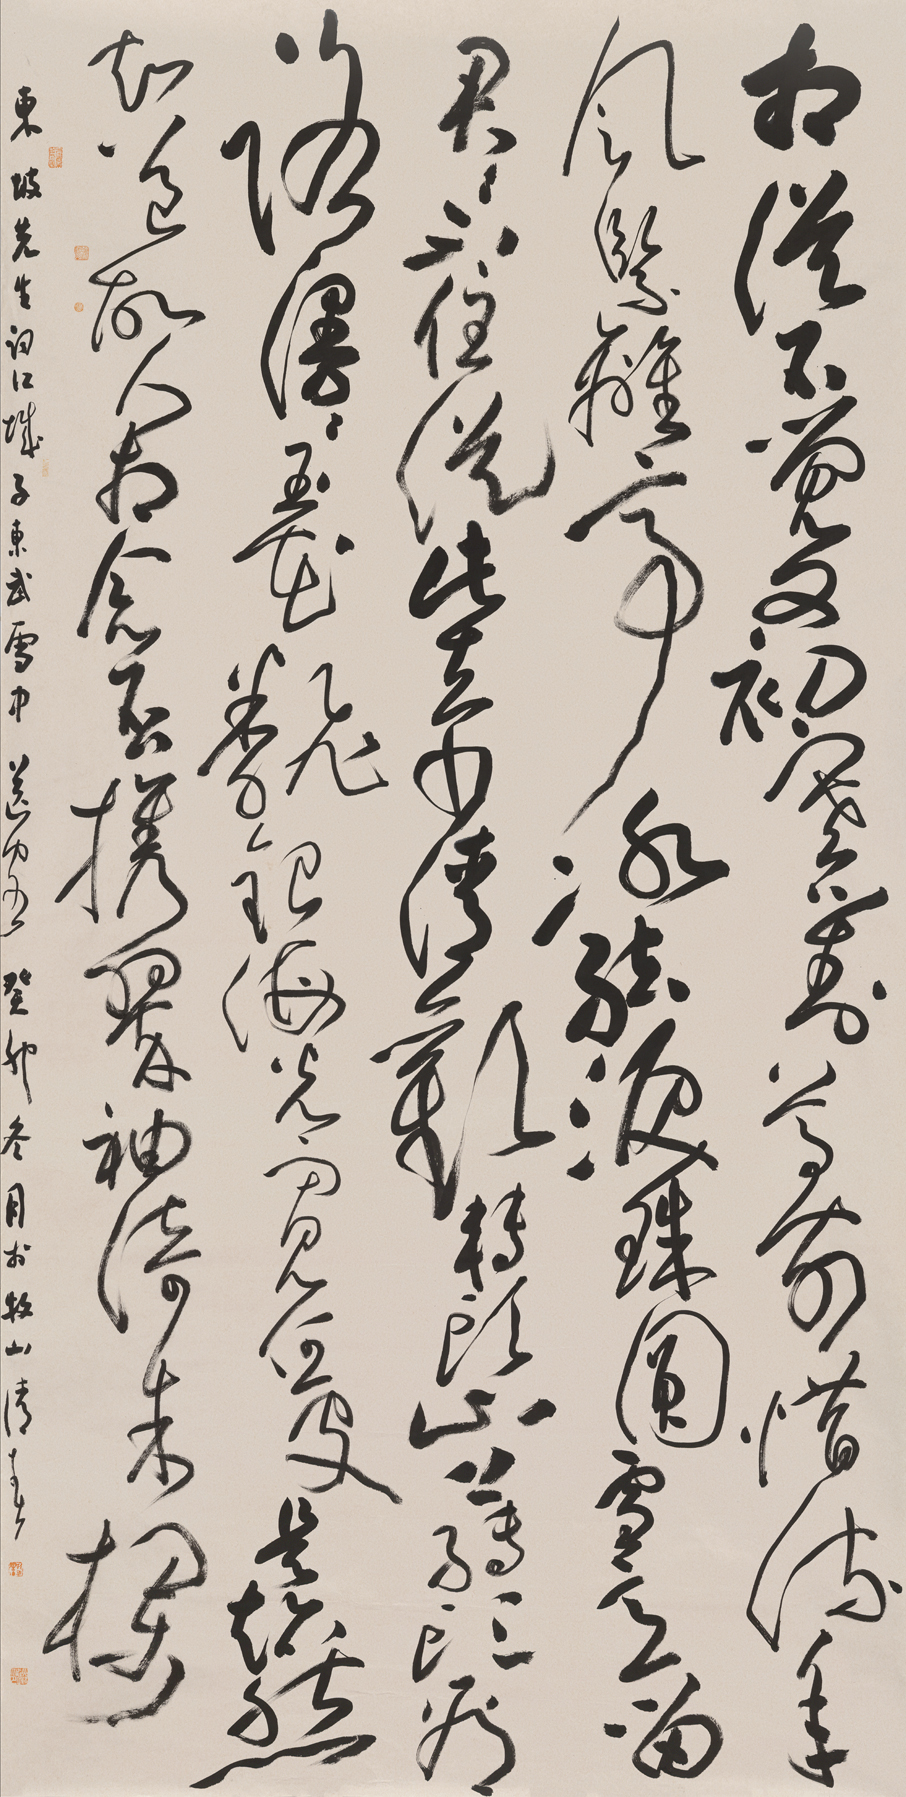 相從不覺又初寒對尊前惜流年
風緊離亭冰結淚珠圓雪意留
君〻不住從此去少清歡轉頭山上轉頭看
路漫〻玉花飜銀海光寬何處是超然
知道故人相念否攜翠袖倚朱欄
東坡先生詞江城子東武雪中送客 癸卯冬月於牧山清